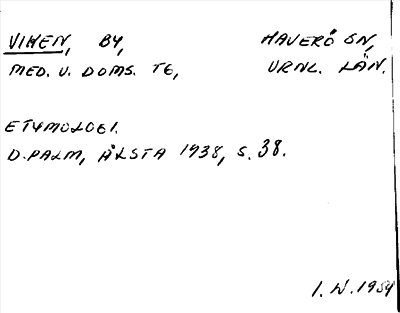 VIKEN, BY, HAVERÖ SN,
MED. V. DOMS. TG, VRNL. LÄN.
ETYMOLOGI.
D. PALM, ÅLSTA 1938, S. 38.
I. W. 1984